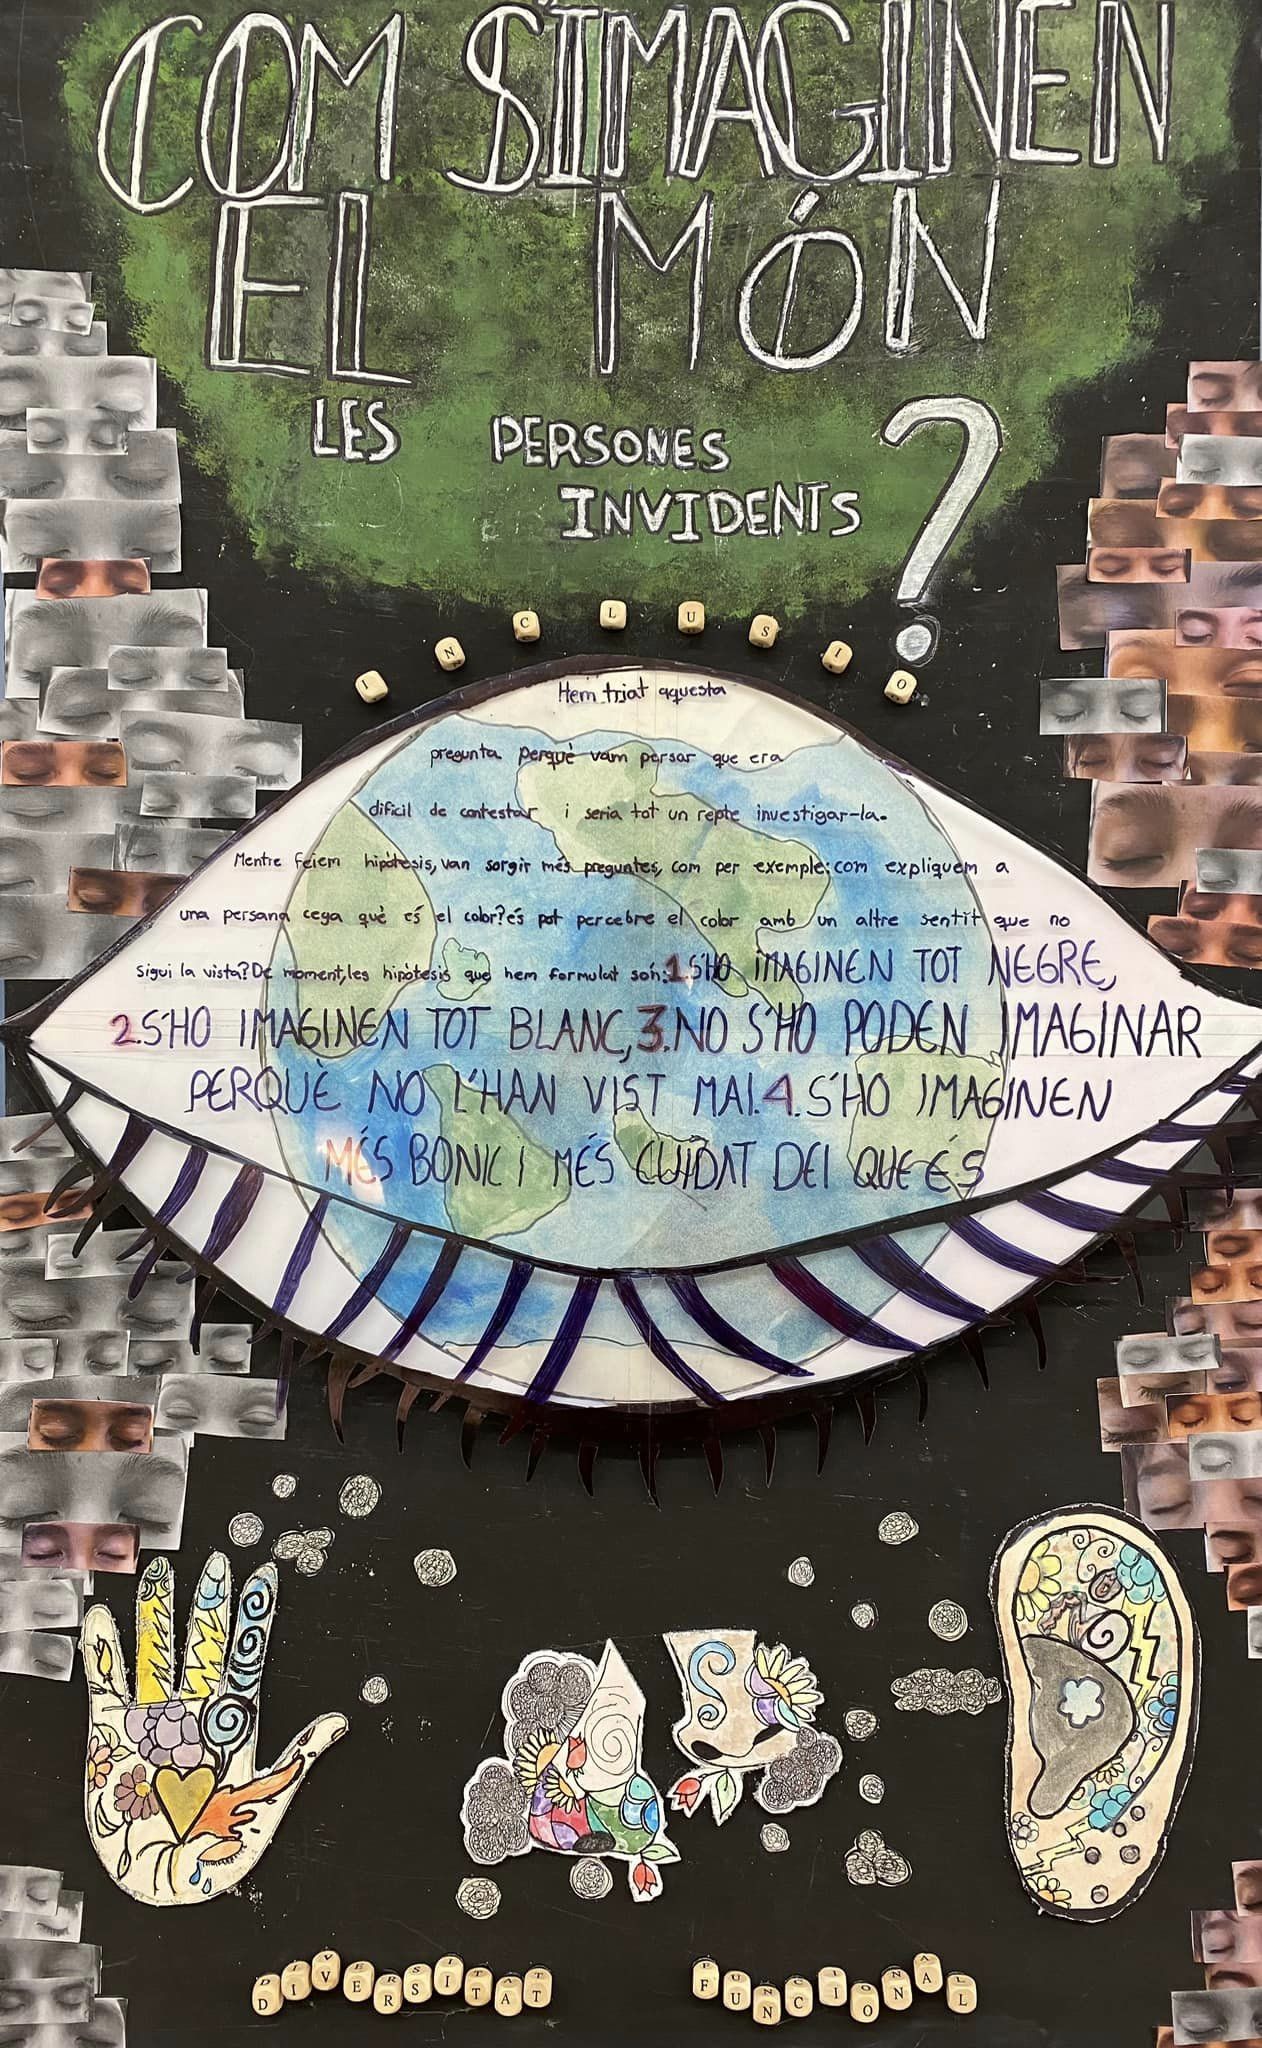 COM S'IMAGINEN
EL MÓN
LES PERSONES
INVIDENTS?
INCLUSIO
Hem triat aquesta
pregunta perquè vam persar que era
dificil de contestar i seria tot un repte investigar-la.
Mentre feiem hipòtesis, van sorgir més preguntes, com per exemple: com expliquem a
una persana cega què és el color? es pot percebre el color amb un altre sentit que no
sigui la vista? De moment, les hipòtesis que hem formulat són: 1. S'HO IMAGINEN TOT NEGRE,
2. S'HO IMAGINEN TOT BLANC, 3. NO S'HO PODEN IMAGINAR
PERQUÈ NO L'HAN VIST MAI. 4. S'HO IMAGINEN
MÉS BONIC i MÉS CUIDAT DEl QUE ÉS
DIVERSITAT FUNCIONAL